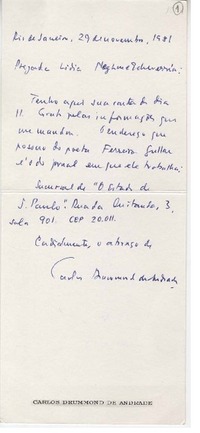 1
Rio de Janeiro, 29 de novembro, 1981
Prezada Lídia Neghme Echeverría:
Tenho aqui sua carta do dia
11. Grato pelas informações que
me mandou. O endereço que
possuo do poeta Ferreira Gullar
é o do jornal em que ele trabalha:
Sucursal de "O Estado de
S. Paulo". Rua da Quitanda, 3,
sala 901. CEP 20.011.
Cordialmente, o abraço de
Carlos Drummond de Andrade
CARLOS DRUMMOND DE ANDRADE